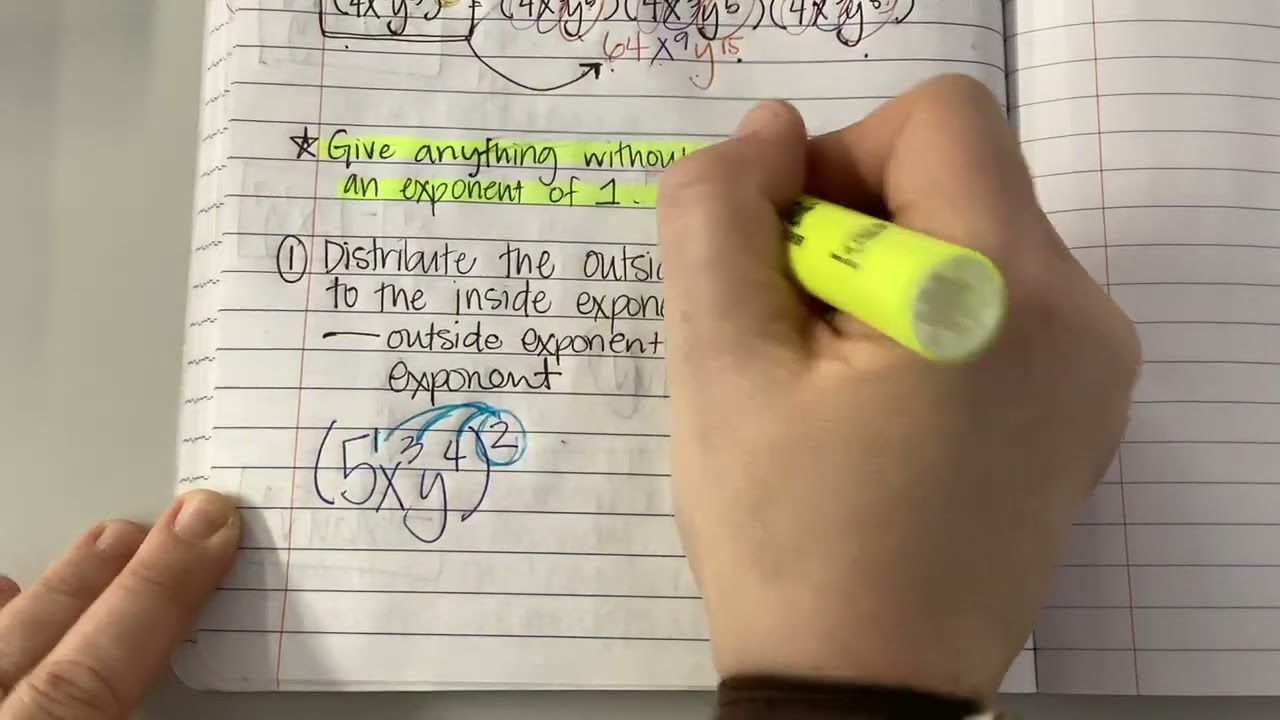 (4x³y⁵)³ = (4x³y⁵)(4x³y⁵)(4x³y⁵)
64x⁹y¹⁵
☆ Give anything without
an exponent of 1.
① Distribute the outsi
to the inside expon
— outside exponent
exponent
(5¹x³y⁴)²